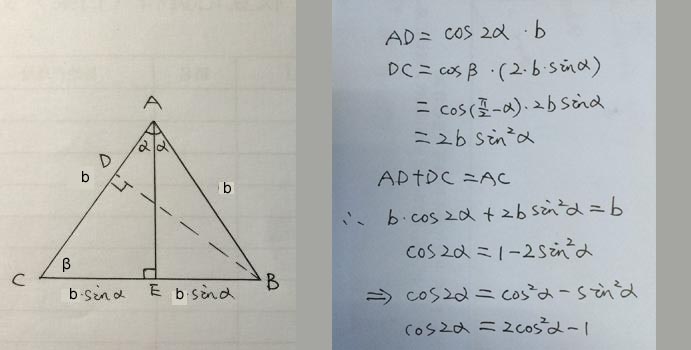 A
α α
D
b
b
C
β
E
B
b·sinα
b·sinα
AD = cos2α · b
DC = cosβ · (2·b·sinα)
= cos(π/2 - α)·2b sinα
= 2b sin²α
AD+DC = AC
∴ b·cos2α + 2b sin²α = b
cos2α = 1-2sin²α
⇒ cos2α = cos²α - sin²α
cos2α = 2cos²α - 1